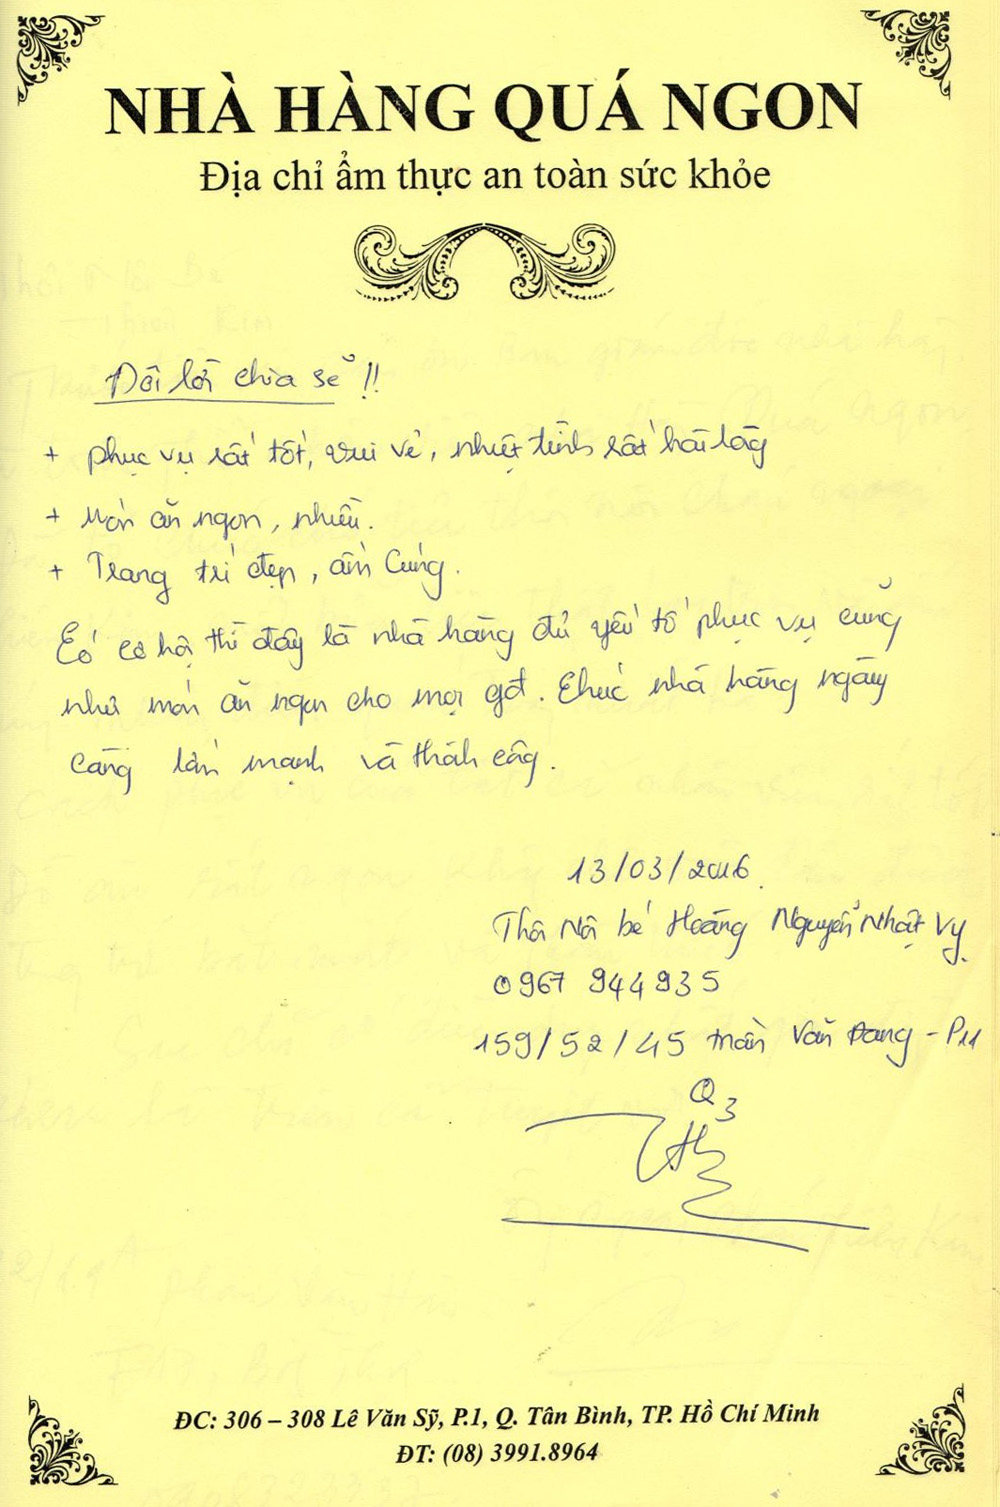 NHÀ HÀNG QUÁ NGON
Địa chỉ ẩm thực an toàn sức khỏe
Đôi lời chia sẻ !!
+ phục vụ rất tốt, vui vẻ, nhiệt tình rất hài lòng
+ Món ăn ngon, nhiều.
+ Trang trí đẹp, ấm cúng.
Có cơ hội thì đây là nhà hàng đủ yếu tố phục vụ cũng
như món ăn ngon cho mọi gđ. Chúc nhà hàng ngày
càng lớn mạnh và thành công.
13/03/2016.
Thôi Nôi bé Hoàng Nguyễn Nhật Vy.
0967 944935
159/52/45 Trần Văn Đang - P11
Q3
ĐC: 306 – 308 Lê Văn Sỹ, P.1, Q. Tân Bình, TP. Hồ Chí Minh
ĐT: (08) 3991.8964